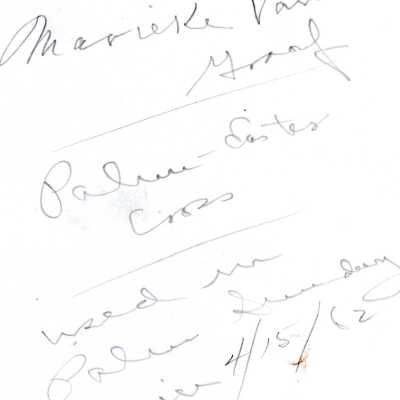 Marieke Van
Graaf
Palm-Easter
Cross
used in
Palm Sunday
4/15/62